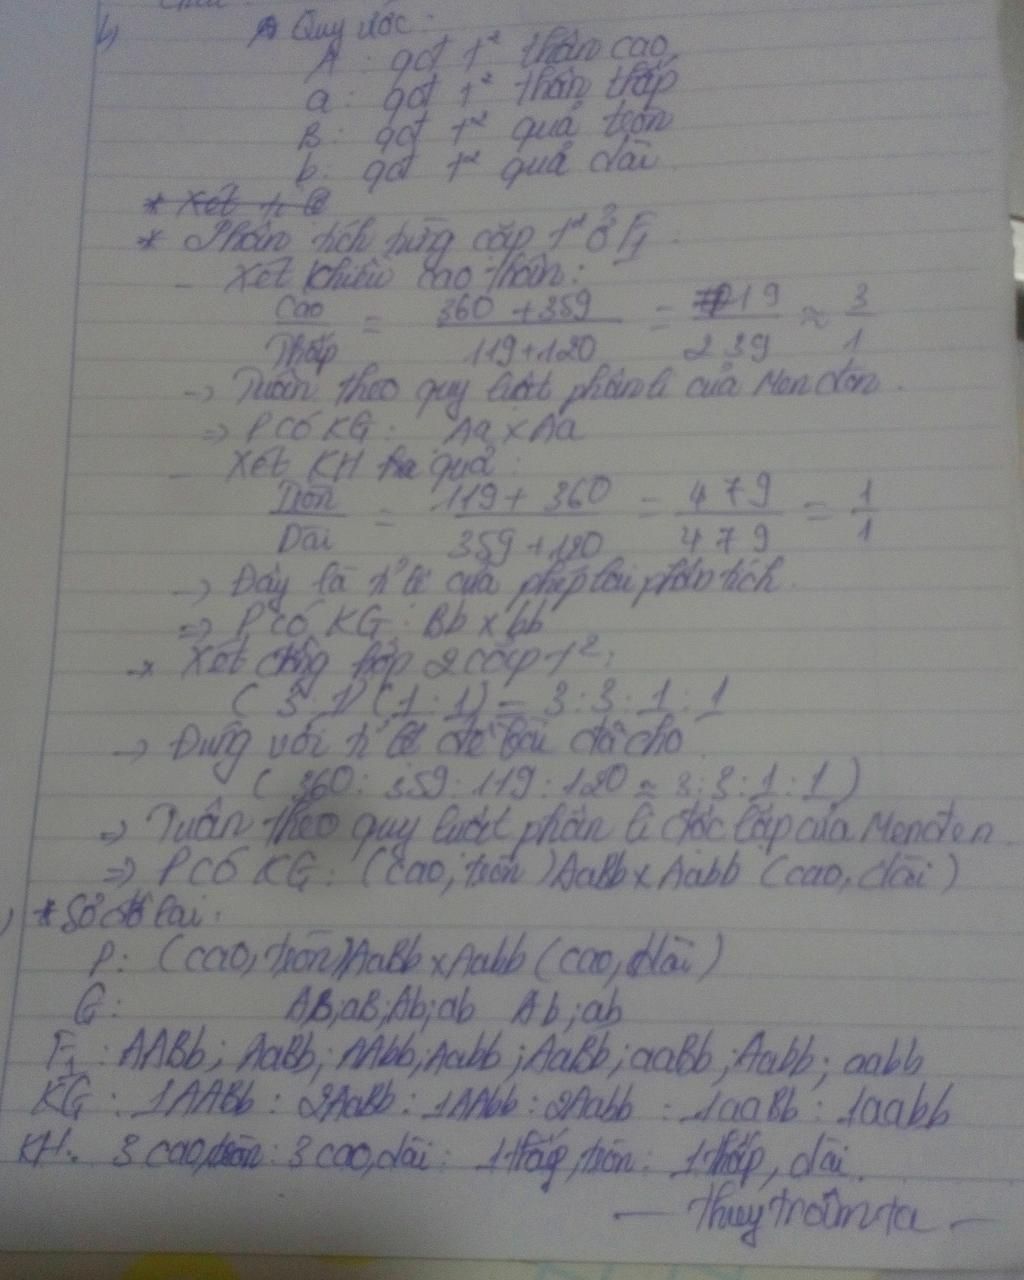 b) Quy ước:
A: qđ t² thân cao
a: qđ t² thân thấp
B: qđ t² quả tròn
b: qđ t² quả dài
* Xét tỉ lệ
* Phân tích từng cặp t² ở F1:
- Xét chiều cao thân:
Cao/Thấp = 360+359/119+120 = 719/239 ≈ 3/1
-> Tuân theo quy luật phân li của Menđen.
=> P có KG: Aa x Aa
- Xét KH quả:
Tròn/Dài = 119+360/359+120 = 479/479 = 1/1
-> Đây là tỉ lệ của phép lai phân tích.
=> P có KG: Bb x bb
-> Xét tổng hợp 2 cặp t²:
(3:1)(1:1) = 3:3:1:1
-> Đúng với tỉ lệ đề bài đã cho
(360:359:119:120 ≈ 3:3:1:1)
=> Tuân theo quy luật phân li độc lập của Menđen
=> P có KG: (cao, tròn) AaBb x Aabb (cao, dài)
* Sơ đồ lai:
P: (cao, tròn) AaBb x Aabb (cao, dài)
G: AB; aB; Ab; ab Ab; ab
F1: AABb; AaBb; AAbb; Aabb; AaBb; aaBb; Aabb; aabb
KG: 1AABb: 2AaBb: 1AAbb: 2Aabb: 1aaBb: 1aabb
KH: 3 cao, tròn: 3 cao, dài: 1 thấp, tròn: 1 thấp, dài.